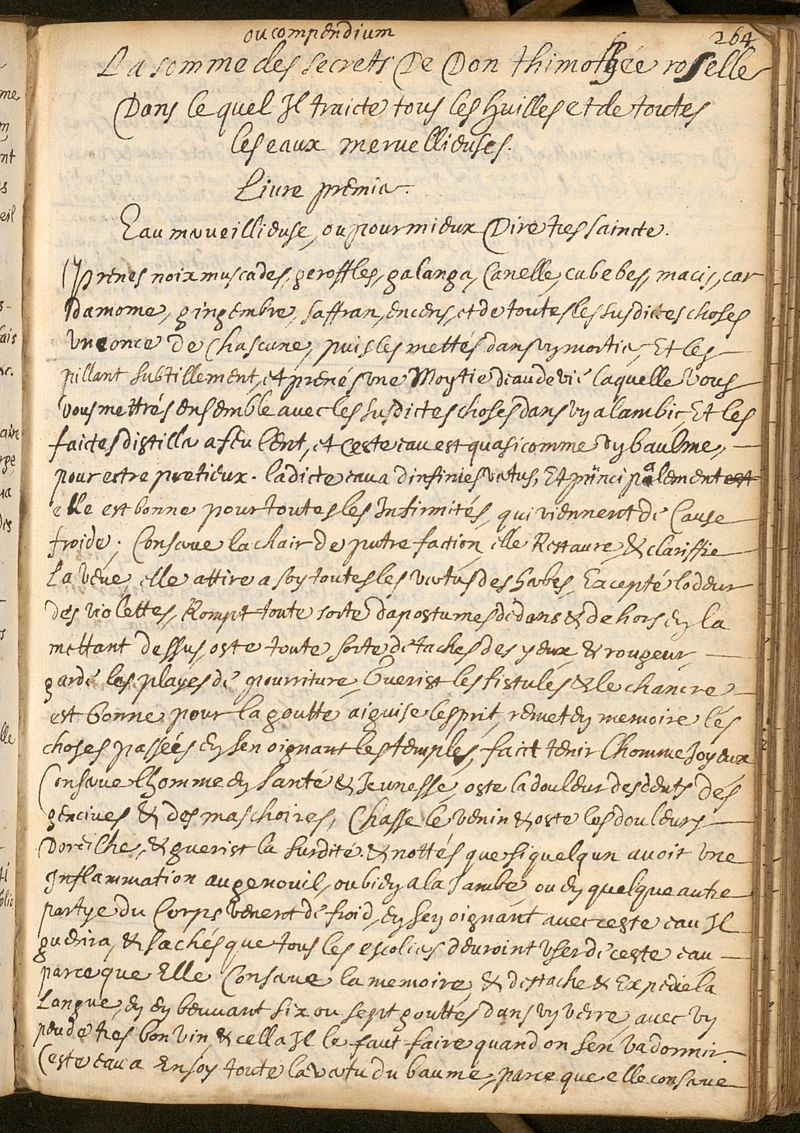 ou compendium
264
La somme des secrets De Don thimothée roselle
Dans le quel Il traicte tous les Huilles et de toutes
les eaux mervellieuses.
Livre premier.
Eau merveillieuse, ou pour mieux Dire tres saincte.
prenes noix muscades, geroffles, galanga, Canelle, cubebes, macis, car
damome, gingembre, saffran, encens, et de toutes les susdictes choses
une once de chascune, puis les mettés dans un mortier, Et les
pillant subtillement, et prenés une Moytie deau de vie laquelle vous
vous mettrés ensemble avec les susdictes choses dans un alambic, Et les
faictes distiller a feu lent, et ceste eau est quasi comme du baulme,
pour estre pretieux. ladicte eau a dinfinies vertus, Et principalement est
elle est bonne pour toutes les Infirmités, qui viennent de Cause
froide; Conserve la chair de putrefaction, elle Restaure, & clariffie
La veue, elle attire a soy toutes les vertus des herbes, Excepté lodeur
des violettes, Rompt toute sorte dapostumes dedans & dehors en la
mettant dessus, oste toute sorte de taches des yeux & rougeur
garde les playes de pourriture, Guerist les fistules & le chancre
est bonne pour la goutte, aiguise lesprit, remet en memoire les
choses passées en sen oignant les temples, faict tenir lhomme Joyeux
Conserve lhomme en santé & Jeunesse, oste la douleur des dents des
gencives & des maschoires, Chasse le venin & oste les douleurs
Doreilhe, & guerist la surdité. & nottés que si quelqun avoit une
Inflammation au genouil, ou bien a la Jambe, ou en quelque autre
partye du Corps venent de froid, en sen oignant avec ceste eau Il
guerira, & sachés que tous les escoliers devroint user de ceste eau
parce que Elle Conserve la memoire, & destache & Expedie la
Langue, en en beuvant six ou sept gouttes dans un verre avec un
peu de tres bon vin & cella Il le faut faire quand on sen va dormir.
Ceste eau a En soy toute la vertu du baume, parce que elle conserve